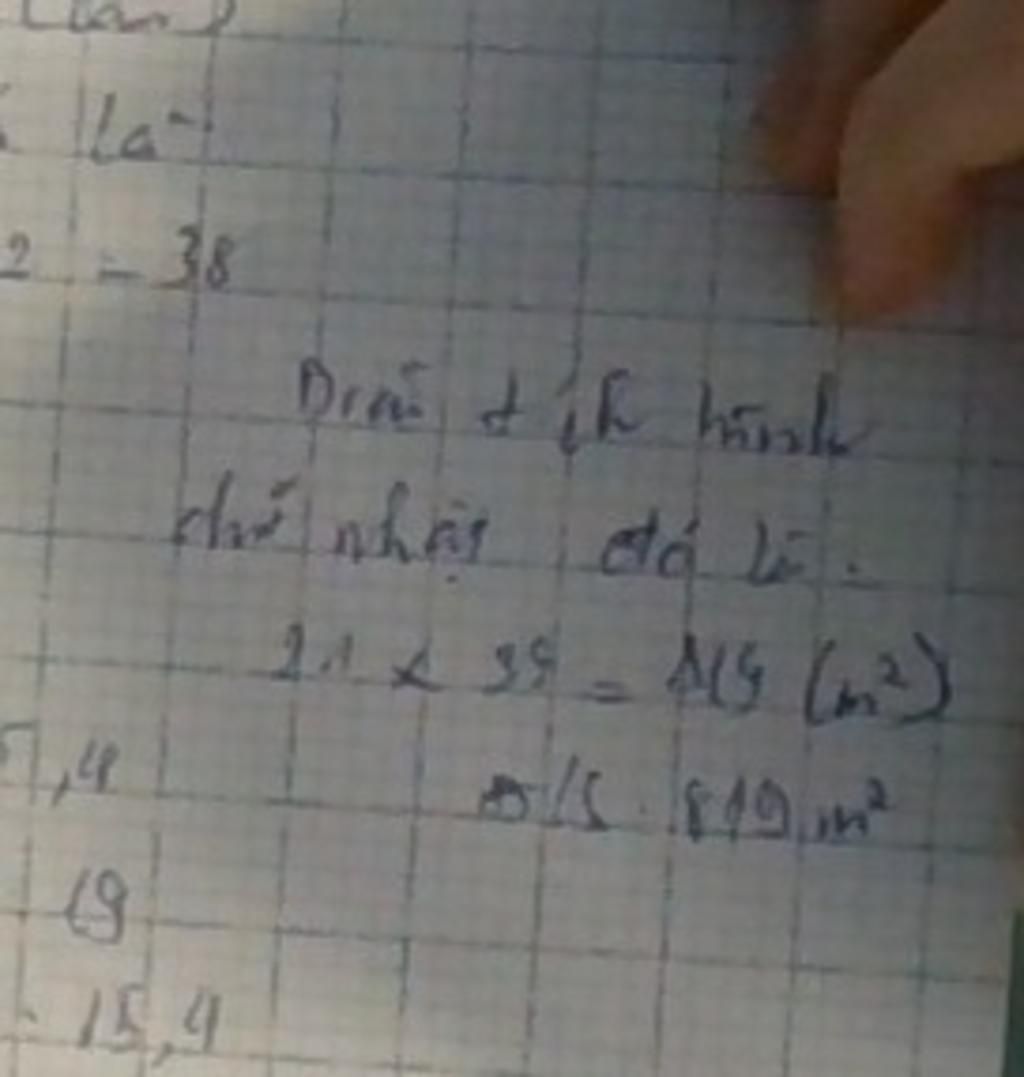 là
2 = 38
Diện tích hình
chữ nhật đó là:
21 x 39 = 819 (m²)
Đ/S: 819 m²
,4
19
15,4